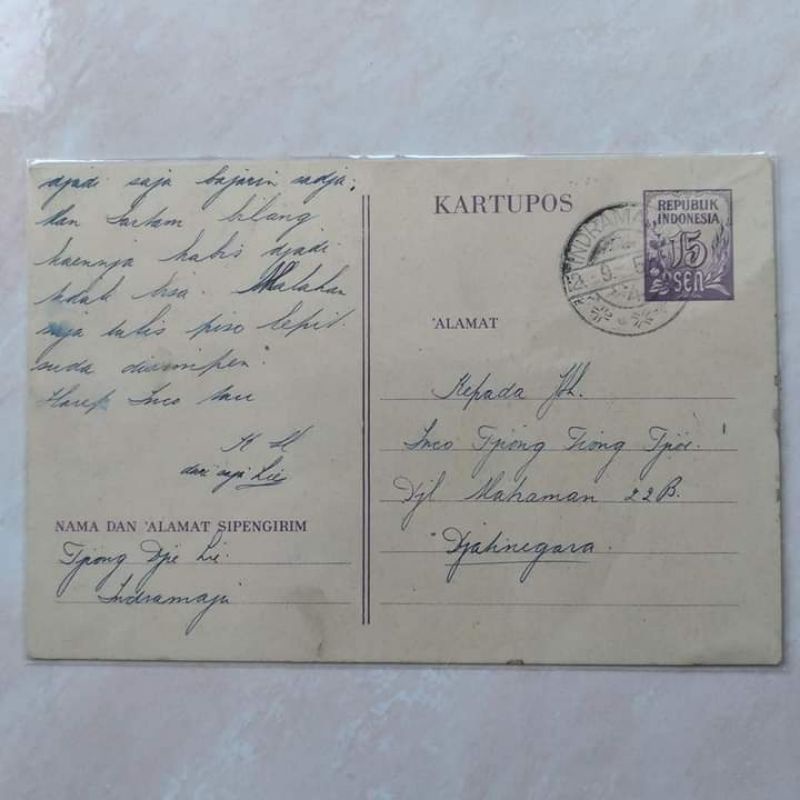 djadi saja bajarin sadja,
dan Sartam bilang
kaennja habis djadi
tidak bisa. Malahan
saja tulis piso lepit
suda disimpen.
Harep Inco tau
dari saja Lie
NAMA DAN 'ALAMAT SIPENGIRIM
Tjiong Djie Lie.
Indramaju
KARTUPOS
INDRAMA
REPUBLIK
INDONESIA
15
SEN
'ALAMAT
Kepada Jth.
Inco Tjiong Tiong Tjoe.
Djl Mahaman 22B.
Djatinegara.